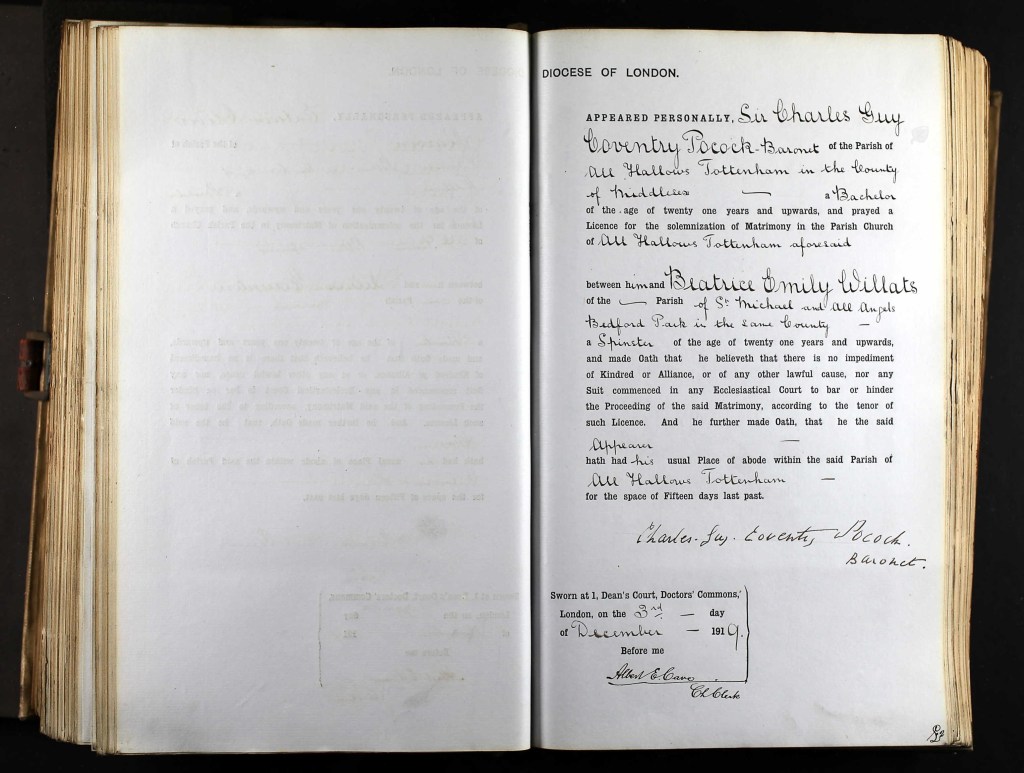 DIOCESE OF LONDON.
APPEARED PERSONALLY, Sir Charles Guy
Coventry Pocock Baronet of the Parish of
All Hallows Tottenham in the County
of Middlesex — a Bachelor
of the age of twenty one years and upwards, and prayed a
Licence for the solemnization of Matrimony in the Parish Church
of All Hallows Tottenham aforesaid
between him and Beatrice Emily Willats
of the — Parish of St Michael and All Angels
Bedford Park in the same County —
a Spinster of the age of twenty one years and upwards,
and made Oath that he believeth that there is no impediment
of Kindred or Alliance, or of any other lawful cause, nor any
Suit commenced in any Ecclesiastical Court to bar or hinder
the Proceeding of the said Matrimony, according to the tenor of
such Licence. And he further made Oath, that he the said
Appearer —
hath had his usual Place of abode within the said Parish of
All Hallows Tottenham —
for the space of Fifteen days last past.
Charles. Guy. Coventry Pocock.
Baronet.
Sworn at 1, Dean's Court, Doctors' Commons,
London, on the 3rd — day
of December — 1919.
Before me
Albert E.
Ch Clerk